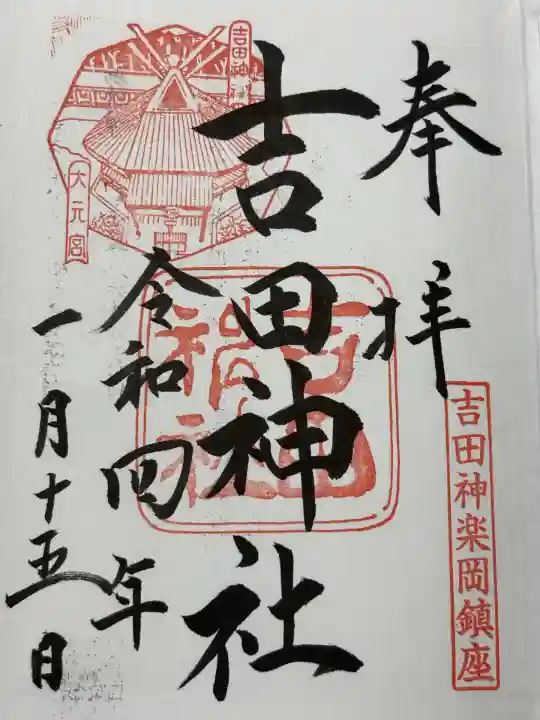 奉拝
吉田神楽岡鎮座
吉田神社
吉田神社
令和四年
一月十五日
吉田神社
大元宮